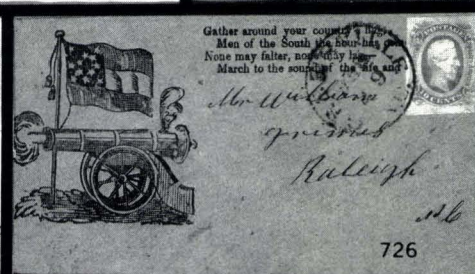 Gather around your country's flag,
Men of the South the hour has
None may falter, none may lag—
March to the sound of the fife and
Mr William
Raleigh
NC
726